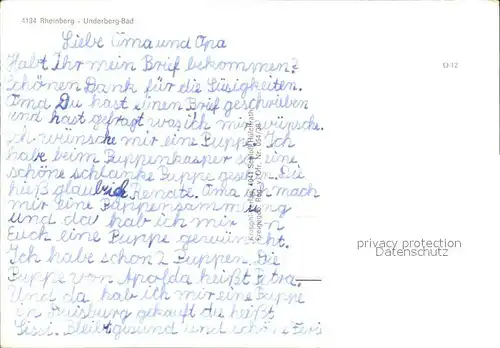 4134 Rheinberg - Underberg-Bad
Liebe Oma und Opa
Habt Ihr mein Brief bekommen?
Schönen Dank für die Süsigkeiten.
Oma Du hast einen Brief geschrieben
und hast gefragt was ich mir wünsche.
Ich wünsche mir eine Puppe. Ich
habe beim Puppenkasper so eine
schöne schlanke Puppe gesehen. Die
hieß glaub ich Renate. Oma ich mach
mir eine Puppensammlung
und da hab ich mir von
Euch eine Puppe gewünscht.
Ich habe schon 2 Puppen. Die
Puppe von Apolda heißt Petra.
Und da hab ich mir eine Puppe
in Duisburg gekauft du heißt
Sissi. Bleibt gesund und schöne Ferie
O-12
privacy protection
Datenschutz